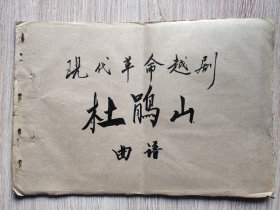 现代革命越剧
杜鹃山
曲谱